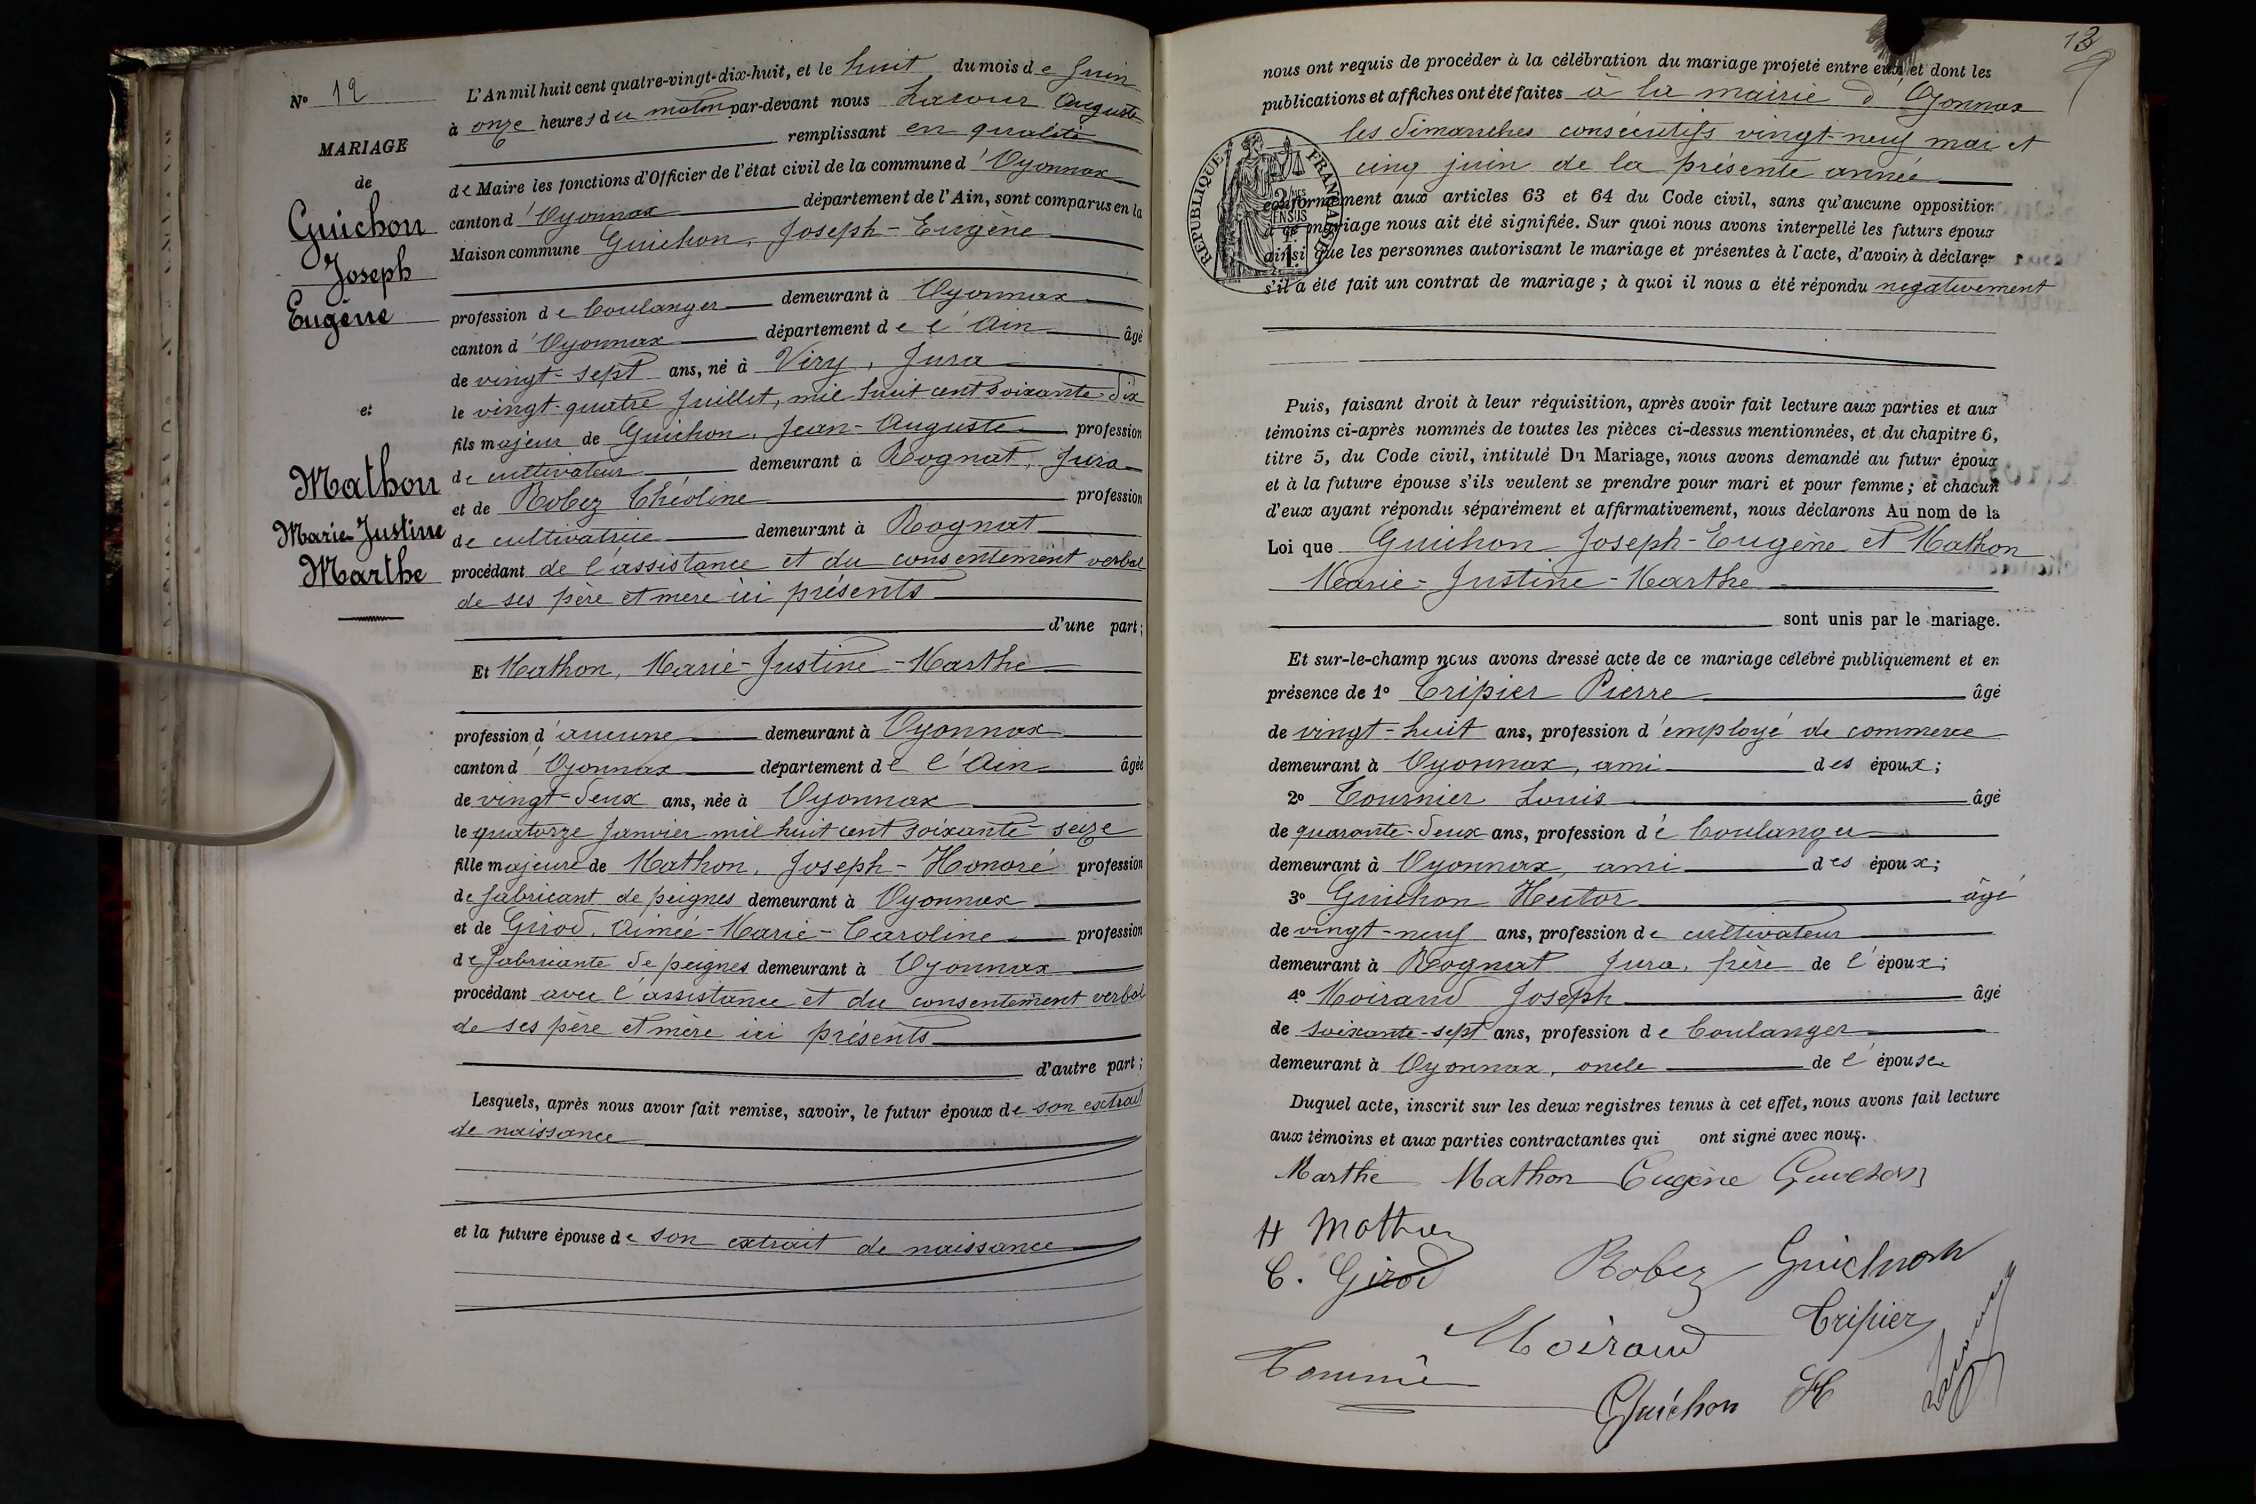 N° 12
MARIAGE
de
Guichon
Joseph
Eugène
et
Mathon
Marie Justine
Marthe
L'An mil huit cent quatre-vingt-dix-huit, et le huit du mois de Juin
à onze heures du matin par-devant nous Lacour Auguste
remplissant en qualité
de Maire les fonctions d'Officier de l'état civil de la commune d'Oyonnax
canton d'Oyonnax département de l'Ain, sont comparus en la
Maison commune Guichon, Joseph-Eugène
profession de boulanger demeurant à Oyonnax
canton d'Oyonnax département de l'Ain âgé
de vingt-sept ans, né à Viry, Jura
le vingt-quatre Juillet, mil huit cent soixante-dix
fils majeur de Guichon, Jean-Auguste profession
de cultivateur demeurant à Rognat, Jura
et de Robez Théoline profession
de cultivatrice demeurant à Rognat
procédant de l'assistance et du consentement verbal
de ses père et mère ici présents
d'une part;
Et Mathon, Marie-Justine-Marthe
profession d'aucune demeurant à Oyonnax
canton d'Oyonnax département de l'Ain âgée
de vingt-deux ans, née à Oyonnax
le quatorze Janvier mil huit cent soixante-seize
fille majeure de Mathon, Joseph-Honoré profession
de fabricant de peignes demeurant à Oyonnax
et de Girod, Aimée-Marie-Caroline profession
de fabricante de peignes demeurant à Oyonnax
procédant avec l'assistance et du consentement verbal
de ses père et mère ici présents
d'autre part;
Lesquels, après nous avoir fait remise, savoir, le futur époux de son extrait
de naissance
et la future épouse de son extrait de naissance
13
nous ont requis de procéder à la célébration du mariage projeté entre eux et dont les
publications et affiches ont été faites à la mairie d'Oyonnax
les dimanches consécutifs vingt-neuf mai et
cinq juin de la présente année
RÉPUBLIQUE FRANÇAISE
conformément aux articles 63 et 64 du Code civil, sans qu'aucune opposition
à ce mariage nous ait été signifiée. Sur quoi nous avons interpellé les futurs époux
ainsi que les personnes autorisant le mariage et présentes à l'acte, d'avoir à déclarer
s'il a été fait un contrat de mariage; à quoi il nous a été répondu negativement
Puis, faisant droit à leur réquisition, après avoir fait lecture aux parties et aux
témoins ci-après nommés de toutes les pièces ci-dessus mentionnées, et du chapitre 6,
titre 5, du Code civil, intitulé Du Mariage, nous avons demandé au futur époux
et à la future épouse s'ils veulent se prendre pour mari et pour femme; et chacun
d'eux ayant répondu séparément et affirmativement, nous déclarons Au nom de la
Loi que Guichon Joseph-Eugène et Mathon
Marie-Justine-Marthe
sont unis par le mariage.
Et sur-le-champ nous avons dressé acte de ce mariage célébré publiquement et en
présence de 1° Tripier Pierre âgé
de vingt-huit ans, profession d'employé de commerce
demeurant à Oyonnax, ami des époux;
2° Tournier Louis âgé
de quarante-deux ans, profession de boulanger
demeurant à Oyonnax, ami des époux;
3° Guichon Hector âgé
de vingt-neuf ans, profession de cultivateur
demeurant à Rognat Jura, frère de l'époux;
4° Moirand Joseph âgé
de soixante-sept ans, profession de boulanger
demeurant à Oyonnax, oncle de l'épouse
Duquel acte, inscrit sur les deux registres tenus à cet effet, nous avons fait lecture
aux témoins et aux parties contractantes qui ont signé avec nous.
Marthe Mathon Eugène Guichon
H Mathon
C. Girod Robez Guichon
Moirand Tripier
Guichon H